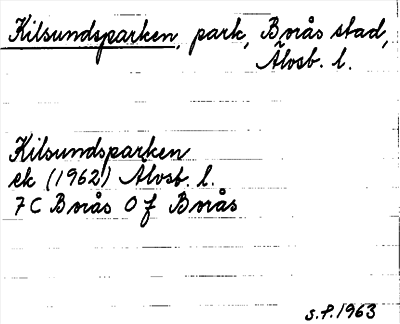 Kilsundsparken, park, Borås stad,
Älvsb. l.
Kilsundsparken
ek (1962) Älvsb. l.
7 C Borås 0 f Borås
s.f. 1963